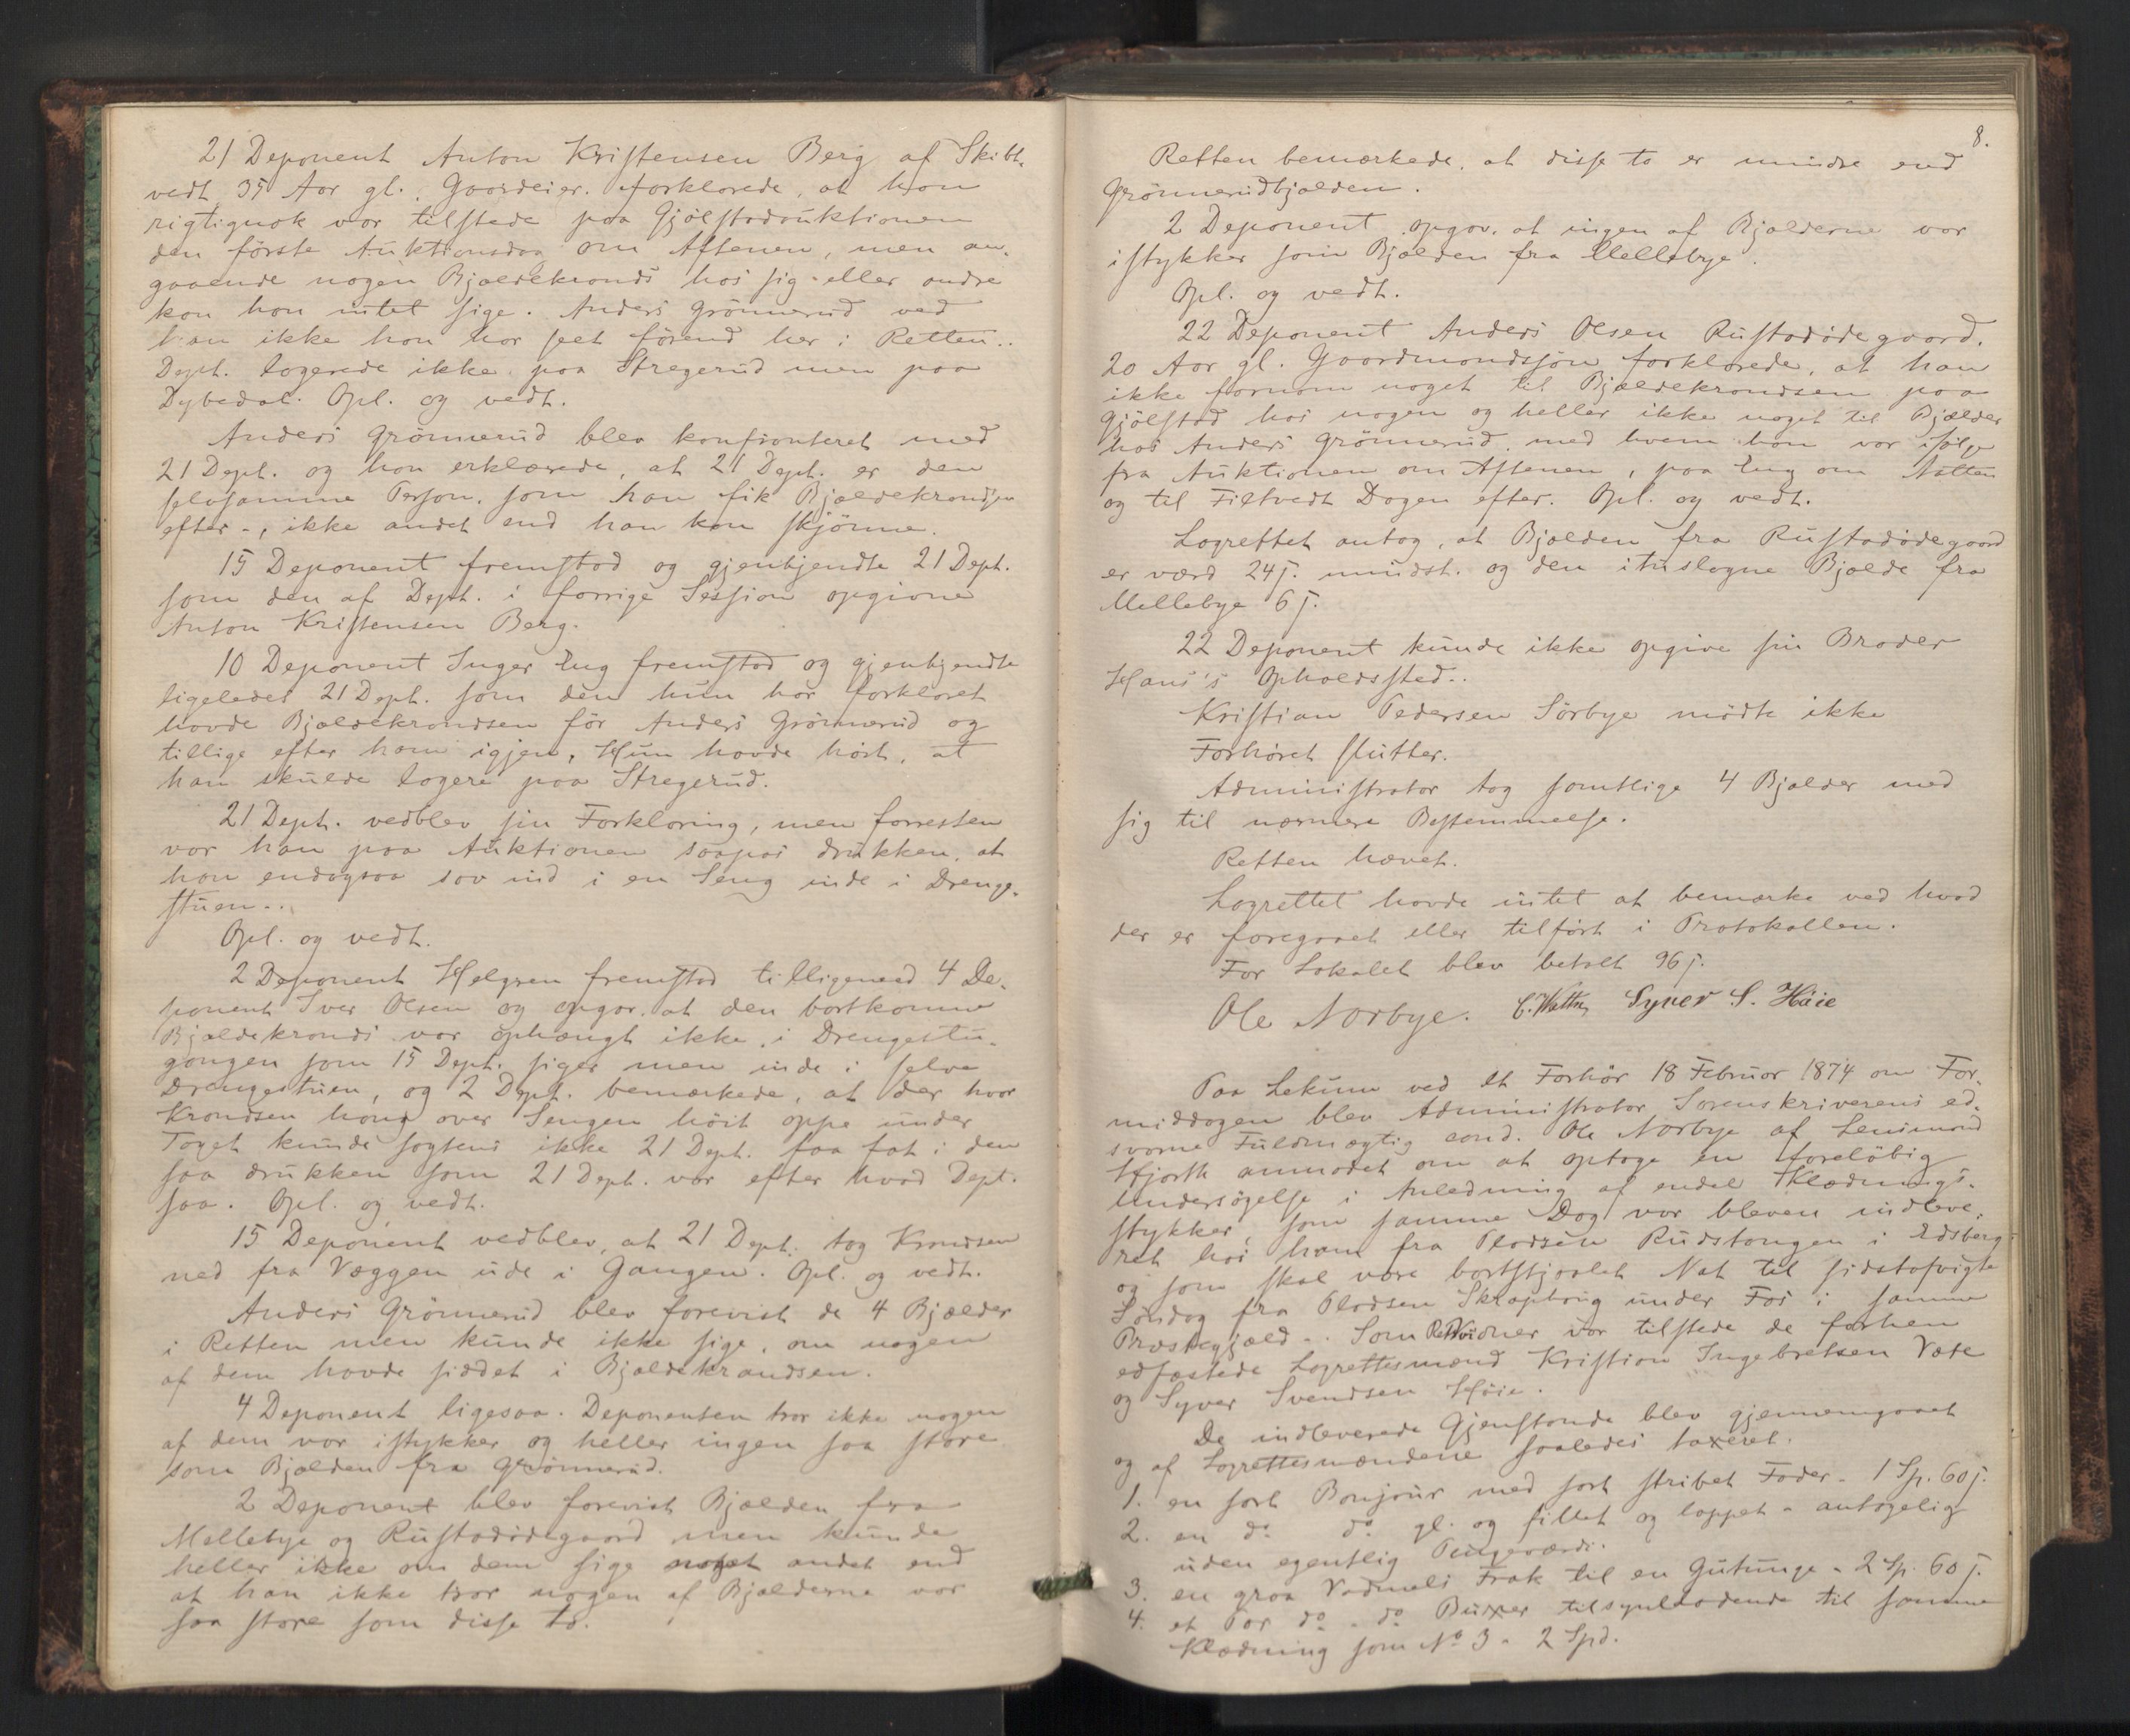 21 Deponent Anton Kristensen Berg af Skibt-
vedt, 35 Aar gl. Gaardeier. forklarede, at han
rigtignok var tilstede paa Gjølstadauktionen
den første Auktionsdag om Aftenen, men an-
gaaende nogen Bjældekrands hos sig eller andre
kan han intet sige. Anders Grønnerud ved
han ikke han har seet førend her i Retten..
Dept. logerede ikke paa Stregerud men paa
Dybedal. Opl. og vedt.
Anders Grønnerud blev konfronteret med
21 Dept. og han erklærede, at 21 Dept. er den
selvsamme Person, som han fik Bjældekrandsen
efter -, ikke andet end han kan skjønne.
15 Deponent fremstod og gjenkjendte 21 Dept.
som den af Dept. i forrige Session opgivne
Anton Kristensen Berg.
10 Deponent Inger Eng fremstod og gjenkjendte
ligeledes 21 Dept. som den hun har forklaret
havde Bjældekrandsen før Anders Grønnerud og
tillige efter ham igjen. Hun havde hørt, at
han skulde logere paa Stregerud.
21 Dept. vedblev sin Forklaring, men forresten
var han paa Auktionen saapas drukken, at
han endogsaa sov ind i en Seng inde i Drenge-
stuen..
Opl. og vedt.
2 Deponent Helgren fremstod tilligemed 4 De-
ponent Iver Olsen og opgav, at den bortkomne
Bjældekrands var ophængt ikke i Drengestu-
gangen som 15 Dept. siger men inde i selve
Drengestuen, og 2 Dept. bemærkede, at der hvor
Krandsen hang over Sengen høit oppe under
Taget kunde sagtens ikke 21 Dept. faa fat i den
saa drukken som 21 Dept. var efter hvad Dept.
saa. Opl. og vedt.
15 Deponent vedblev, at 21 Dept. tog Krandsen
ned fra Væggen ude i Gangen. Opl. og vedt.
Anders Grønnerud blev forevist de 4 Bjælder
i Retten men kunde ikke sige, om nogen
af dem havde siddet i Bjældekrandsen.
4 Deponent ligesaa. Deponenten tror ikke nogen
af dem var istykker og heller ingen saa store
som Bjælden fra Grønnerud.
2 Deponent blev forevist Bjælden fra
Mellebye og Rustadødegaard men kunde
heller ikke om dem sige noget andet end
at han ikke tror nogen af Bjælderne var
saa store som disse to.
8.
Retten bemærkede, at disse to er mindre end
Grønnerudbjælden.
2 Deponent opgav, at ingen af Bjælderne var
istykker som Bjælden fra Mellebye.
Opl. og vedt.
22 Deponent Anders Olsen Rustadødegaard,
20 Aar gl. Gaardmandssøn forklarede, at han
ikke fornam noget til Bjældekrandsen paa
Gjølstad hos nogen og heller ikke noget til Bjælder
hos Anders Grønnerud med hvem han var ifølge
fra Auktionen om Aftenen, paa Eng om Natten
og til Filtvedt Dagen efter. Opl. og vedt.
Lagrettet antog, at Bjælden fra Rustadødegaard
er værd 24 ʃ. mindst. og den ituslagne Bjælde fra
Mellebye 6 ʃ.
22 Deponent kunde ikke opgive sin Broder
Hans's Opholdssted..
Kristian Pedersen Sørbye mødte ikke
Forhøret slutter.
Administrator tog samtlige 4 Bjælder med
sig til nærmere Bestemmelse.
Retten hævet.
Lagrettet havde intet at bemærke ved hvad
der er foregaaet eller tilført i Protokollen.
For Lokalet blev betalt 96 ʃ.
Ole Norbye. Syver S. Høie
Paa Lekum ved et Forhør 18 Februar 1874 om For-
middagen blev Administrator Sorenskriverens ed-
svorne Fuldmægtig cand. Ole Norbye af Lensmand
Hjorth anmodet om at optage en foreløbig
Undersøgelse i Anledning af endel Klædnings-
stykker som samme Dag var bleven indleve-
ret hos ham fra Pladsen Rudstangen i Edsberg
og som skal være bortstjaalet Nat til sidstafvigte
Søndag fra Pladsen Skraptorig under Fos i samme
Præstegjæld -. Som Retsvidner var tilstede de forhen
edfæstede Lagrettesmænd Kristian Ingebretsen Vate
og Syver Svendsen Høie.
De indleverede Gjenstande blev gjennemgaaet
og af Lagrettesmændene saaledes taxeret.
1. en sort Bonjour med sort stribet Foder - 1 Sp. 60 ʃ.
2. en do do gl. og fillet og lappet - antagelig
uden egentlig Pengeværdi.
3. en graa Vadmels Frak til en Gutunge - 2 Sp. 60 ʃ.
4. et Par do - do Buxer tilsynladende til samme
Klædning som No 3 - 2 Spd.